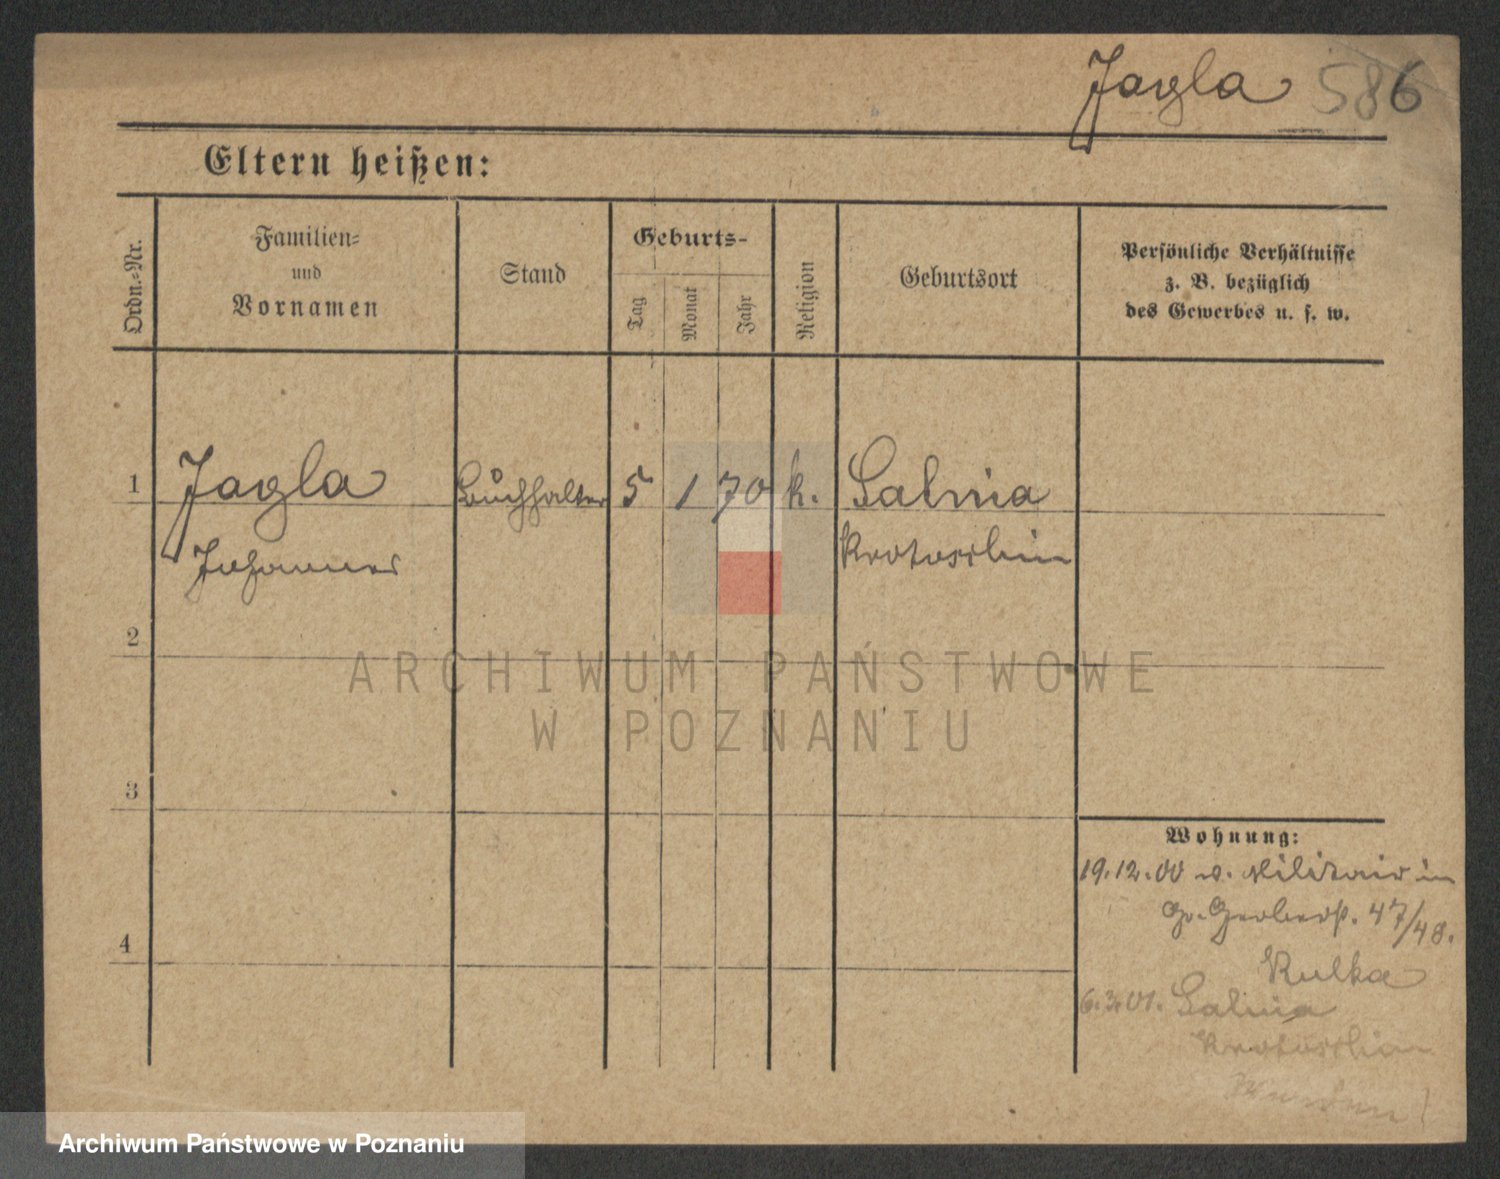 Jagla 586
Eltern heißen:
Ordn.-Nr.
Familien-
und
Vornamen
Stand
Geburts-
Tag
Monat
Jahr
Religion
Geburtsort
Persönliche Verhältnisse
z. B. bezüglich
des Gewerbes u. s. w.
1 Jagla Buchhalter 5 1 70 k. Salnia
Johannes Krotoschin
2
ARCHIWUM PAŃSTWOWE
W POZNANIU
3
Wohnung:
19.12.00 v. Militair in
Gr. Gerberst. 47/48.
4
Kulka
6.3.01. Salnia
Krotoschin
Archiwum Państwowe w Poznaniu